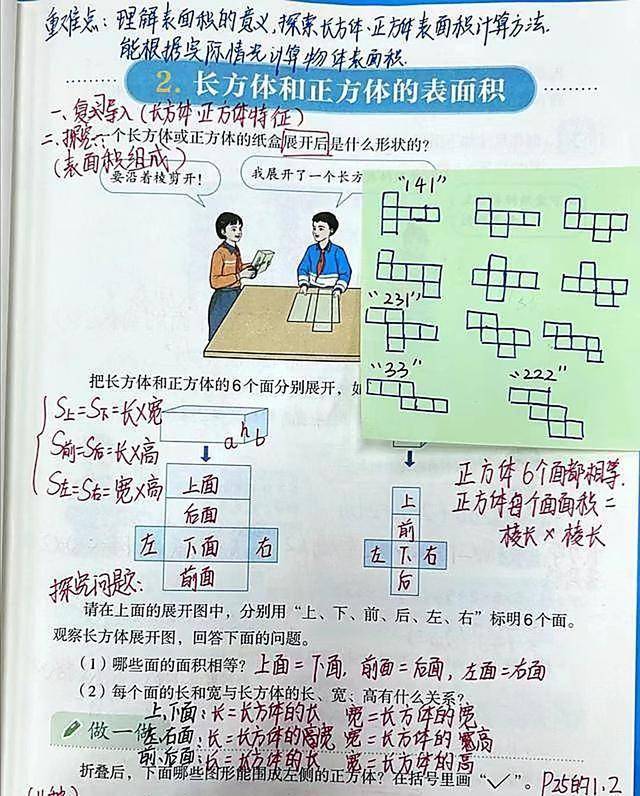 重难点：理解表面积的意义，探索长方体、正方体表面积计算方法.
能根据实际情况计算物体表面积.
2. 长方体和正方体的表面积
一、复习导入（长方体 正方体特征）
二、探究一个长方体或正方体的纸盒展开后是什么形状的？
（表面积组成）
要沿着棱剪开！
我展开了一个长方
"141"
"231"
"33"
"222"
把长方体和正方体的6个面分别展开，如
S上=S下=长×宽
S前=S后=长×高
S左=S右=宽×高
a h b
正方体6个面都相等.
正方体每个面面积=
棱长×棱长
上面
后面
左 下面 右
前面
上
前
左 下 右
后
探究问题：
请在上面的展开图中，分别用“上、下、前、后、左、右”标明6个面。
观察长方体展开图，回答下面的问题。
（1）哪些面的面积相等？上面=下面，前面=后面，左面=右面
（2）每个面的长和宽与长方体的长、宽、高有什么关系？
上、下面：长=长方体的长 宽=长方体的宽
做一做
左、右面：长=长方体的高宽 宽=长方体的宽高
前、后面：长=长方体的长 宽=长方体的高
折叠后，下面哪些图形能围成左侧的正方体？在括号里画“✓”。P25的1.2